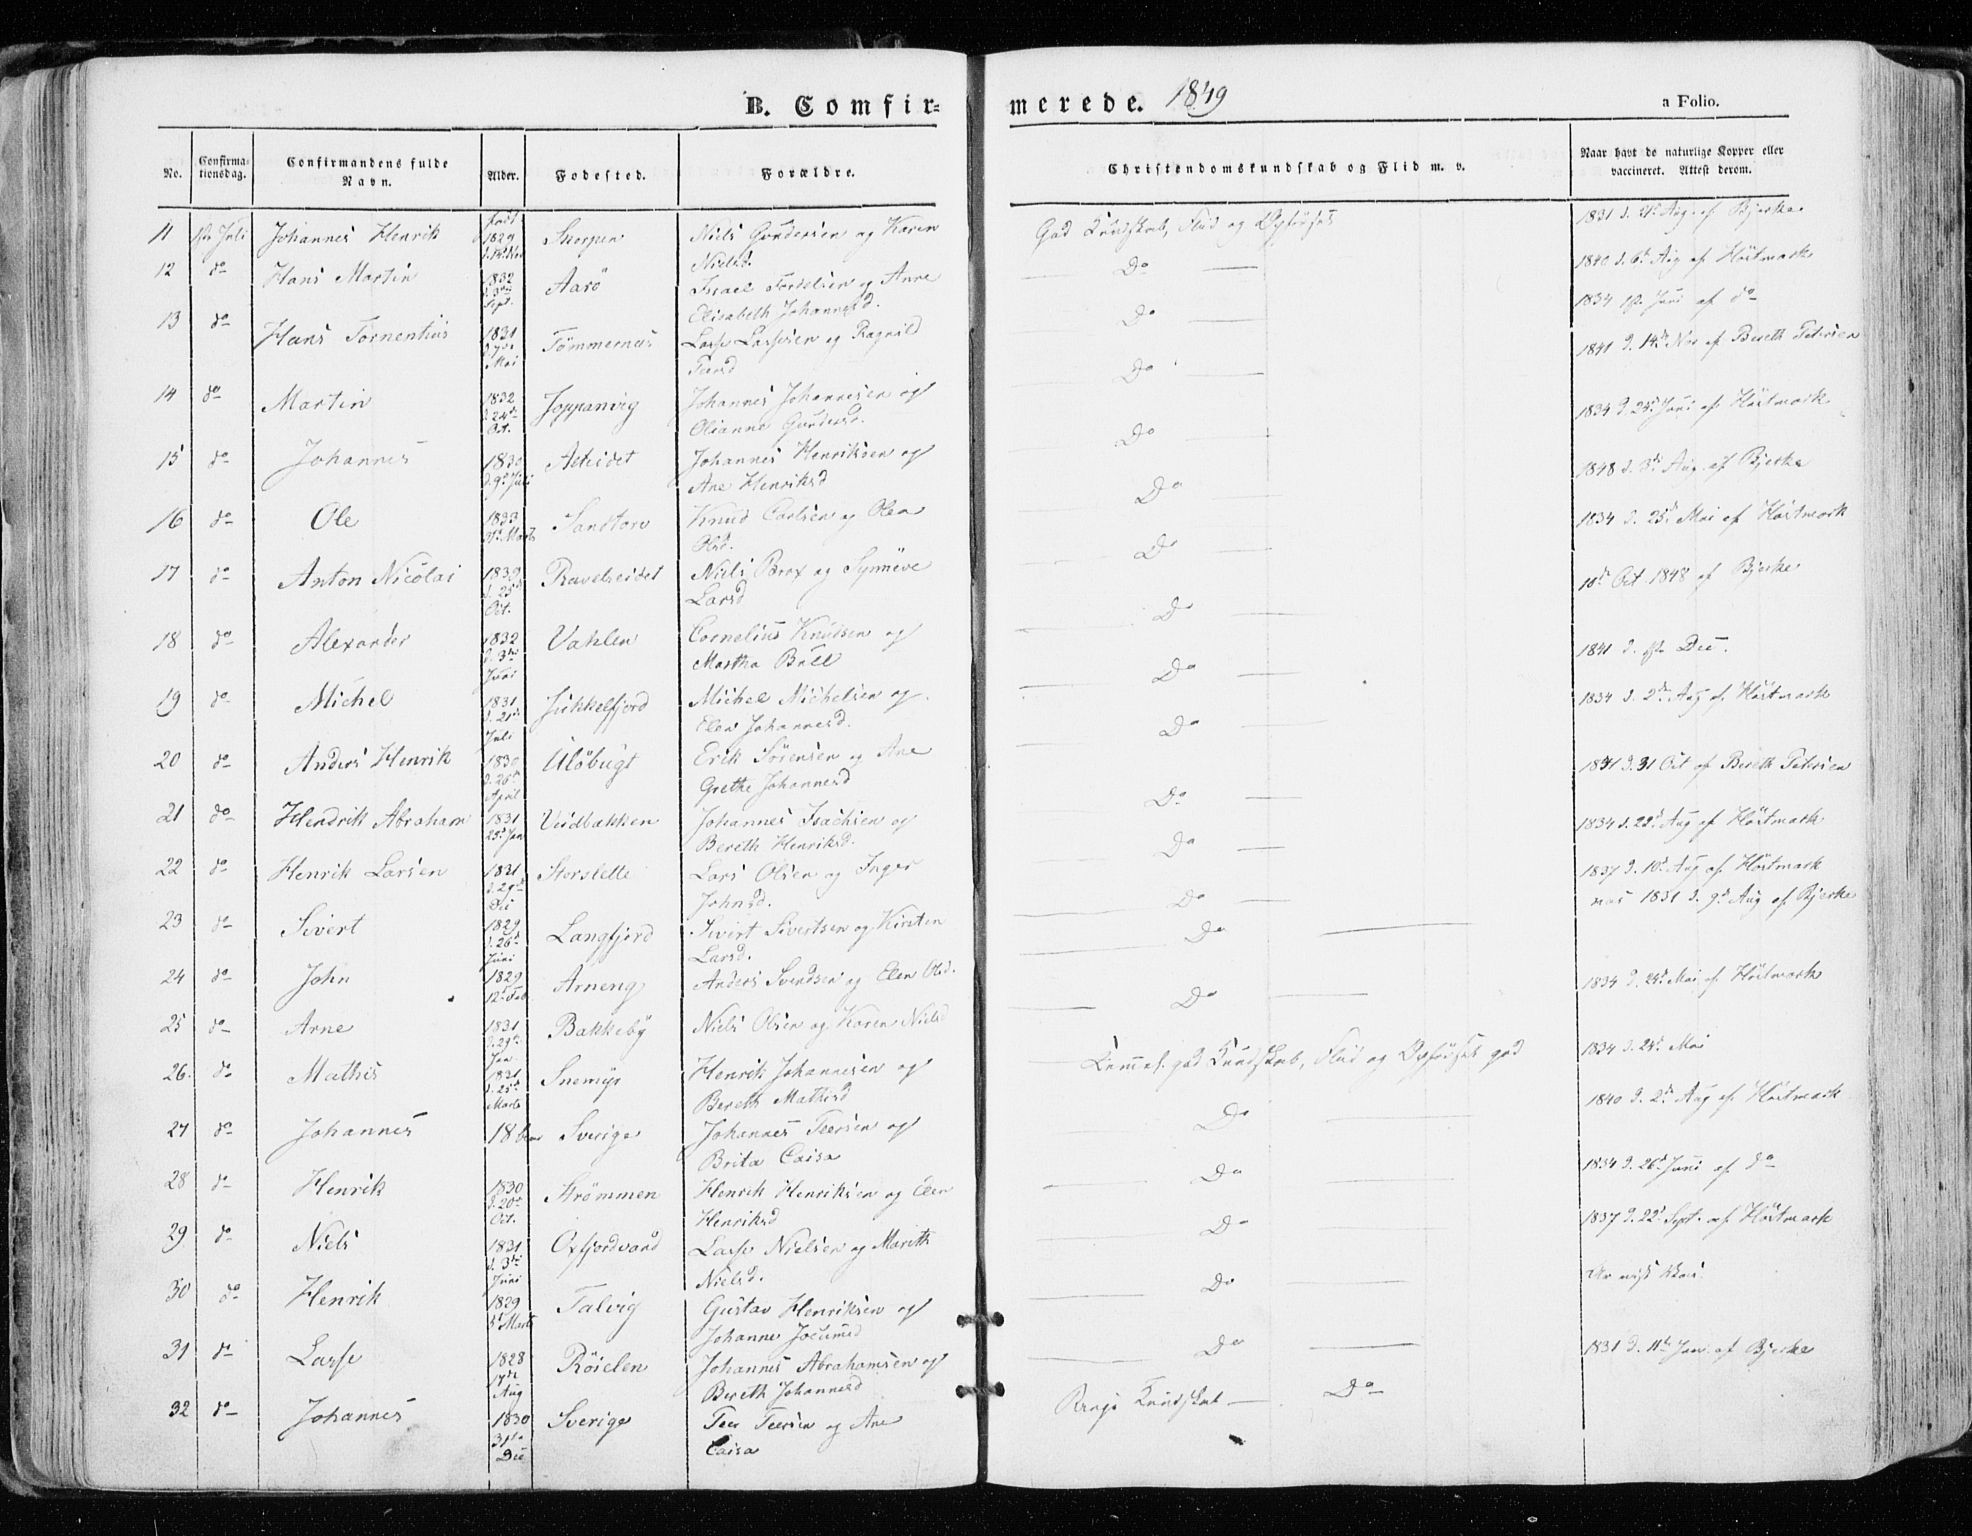 B. Comfir=
merede. 1849
a Folio.
No.
Confirma-
tionsdag.
Confirmandens fulde
Navn.
Alder.
Fodested.
Forældre.
Christendomskundskab og Flid m. v.
Naar havt de naturlige Kopper eller
vaccineret. Attest derom.
11 1ste Juli Johannes Henrik 1829 Skorpen Niels Gundersen og Karen
Nielsd.
God Kundskab, Flid og Opførsel
1831 d. 21d Aug. af Bjerke
12 do Hans Martin 1832 Sept. Aarö Israel Fordelsen og Anne
Elisabeth Johannesd.
Do
1840 d. 6te Aug af Höstmark
13 do Hans Tornentius 1831 Mai Tömmernes Lasse Lassesen og Ragnild
Teersd
Do
1834 Juni af do
14 do Martin 1832 d. 24de Oct. Joppavirg Johannes Johannesen og
Olianne Gundersd.
Do
1841 d. 14de Nov af Bereth Petersen
15 do Johannes 1830 d. 9de Juli Alteidet Johannes Henriksen og
Ane Henriksd
Do
1834 d. 25d Juni af Höstmark
16 do Ole 1833 Marts Sandtorv Knud Carlsen og Olea
Olsd.
Do
1848 d. 3d Aug. af Bjerke
17 do Anton Nicolai 1839 d. 25de Oct. Ravelseidet Niels Brox og Synneve
Larsd
Do
1834 d. 25d Mai af Höstmark
18 do Alexander 1832 d. 3de Juni Vahlen Cornelius Knudsen og
Martha Bull
Do
10de Oct 1848 af Bjerke
19 do Michel 1831 d. 21de Juli Jukkelfjord Michel Michelsen og
Elen Johannesd.
Do
1841 d. 1ste Dec.
20 do Anders Henrik 1830 d. 26de April Ulöbugt Erik Sörensen og Ane
Grethe Johannesd
Do
1834 d. 2de Aug af Höstmark
21 do Hendrik Abraham 1831 28d Jan Veidbakken Johannes Isachsen og
Bereth Henriksd.
Do
1841 d. 31 Oct af Bereth Petersen
22 do Henrik Larsen 1831 d. 29de Storslette Lars Olsen og Inger
Johnsd.
Do
1834 d. 22d Aug af Höstmark
23 do Sivert 1829 d. 26d Juni Langfjord Sivert Sivertsen og Kirsten
Larsd.
Do
1837 d. 10d Aug af Höstmark
1831 d. 9d Aug af Bjerke
24 do John 1829 12d Feb. Arneng Anders Svendsen og Elen Olsd.
Do
1834 d. 24d Mai af Höstmark
25 do Arne 1831 d. 29de Jan. Bakkeby Niels Olsen og Karen Nielsd
Do
1834 d. 24d Mai
26. do Mathis 1831 d. 25de Marts Snemyr Henrik Johannesen og
Bereth Mathisd
god Kundskab, Flid og Opförsel god
1840 d. 2d Aug af Höstmark
27 do Johannes 18 Sverige Johannes Teersen og
Brita Caisa
Do
28 do Henrik 1830 d. 20de Oct. Strömmen Henrik Henriksen og Elen
Henriksd
Do
1834 d. 26d Juni af do
29 do Niels 1831 d. 3de Juni Oxfjordvand Lasse Nielsen og Marith
Nielsd.
Do
1837 d. 22d Sept. af Höstmark
30 do Henrik 1829 Marts Talvig Gustav Henriksen og
Johanne
Do
31 do Lasse 1828 17de Aug Röielen Johannes Abrahamsen og
Bereth Johannesd
Do
1831 d. 11te Jan. af Bjerke
32 do Johannes 1830 31te Dec Sverige Teer Teersen og Ane
Caisa
Kundskab Do